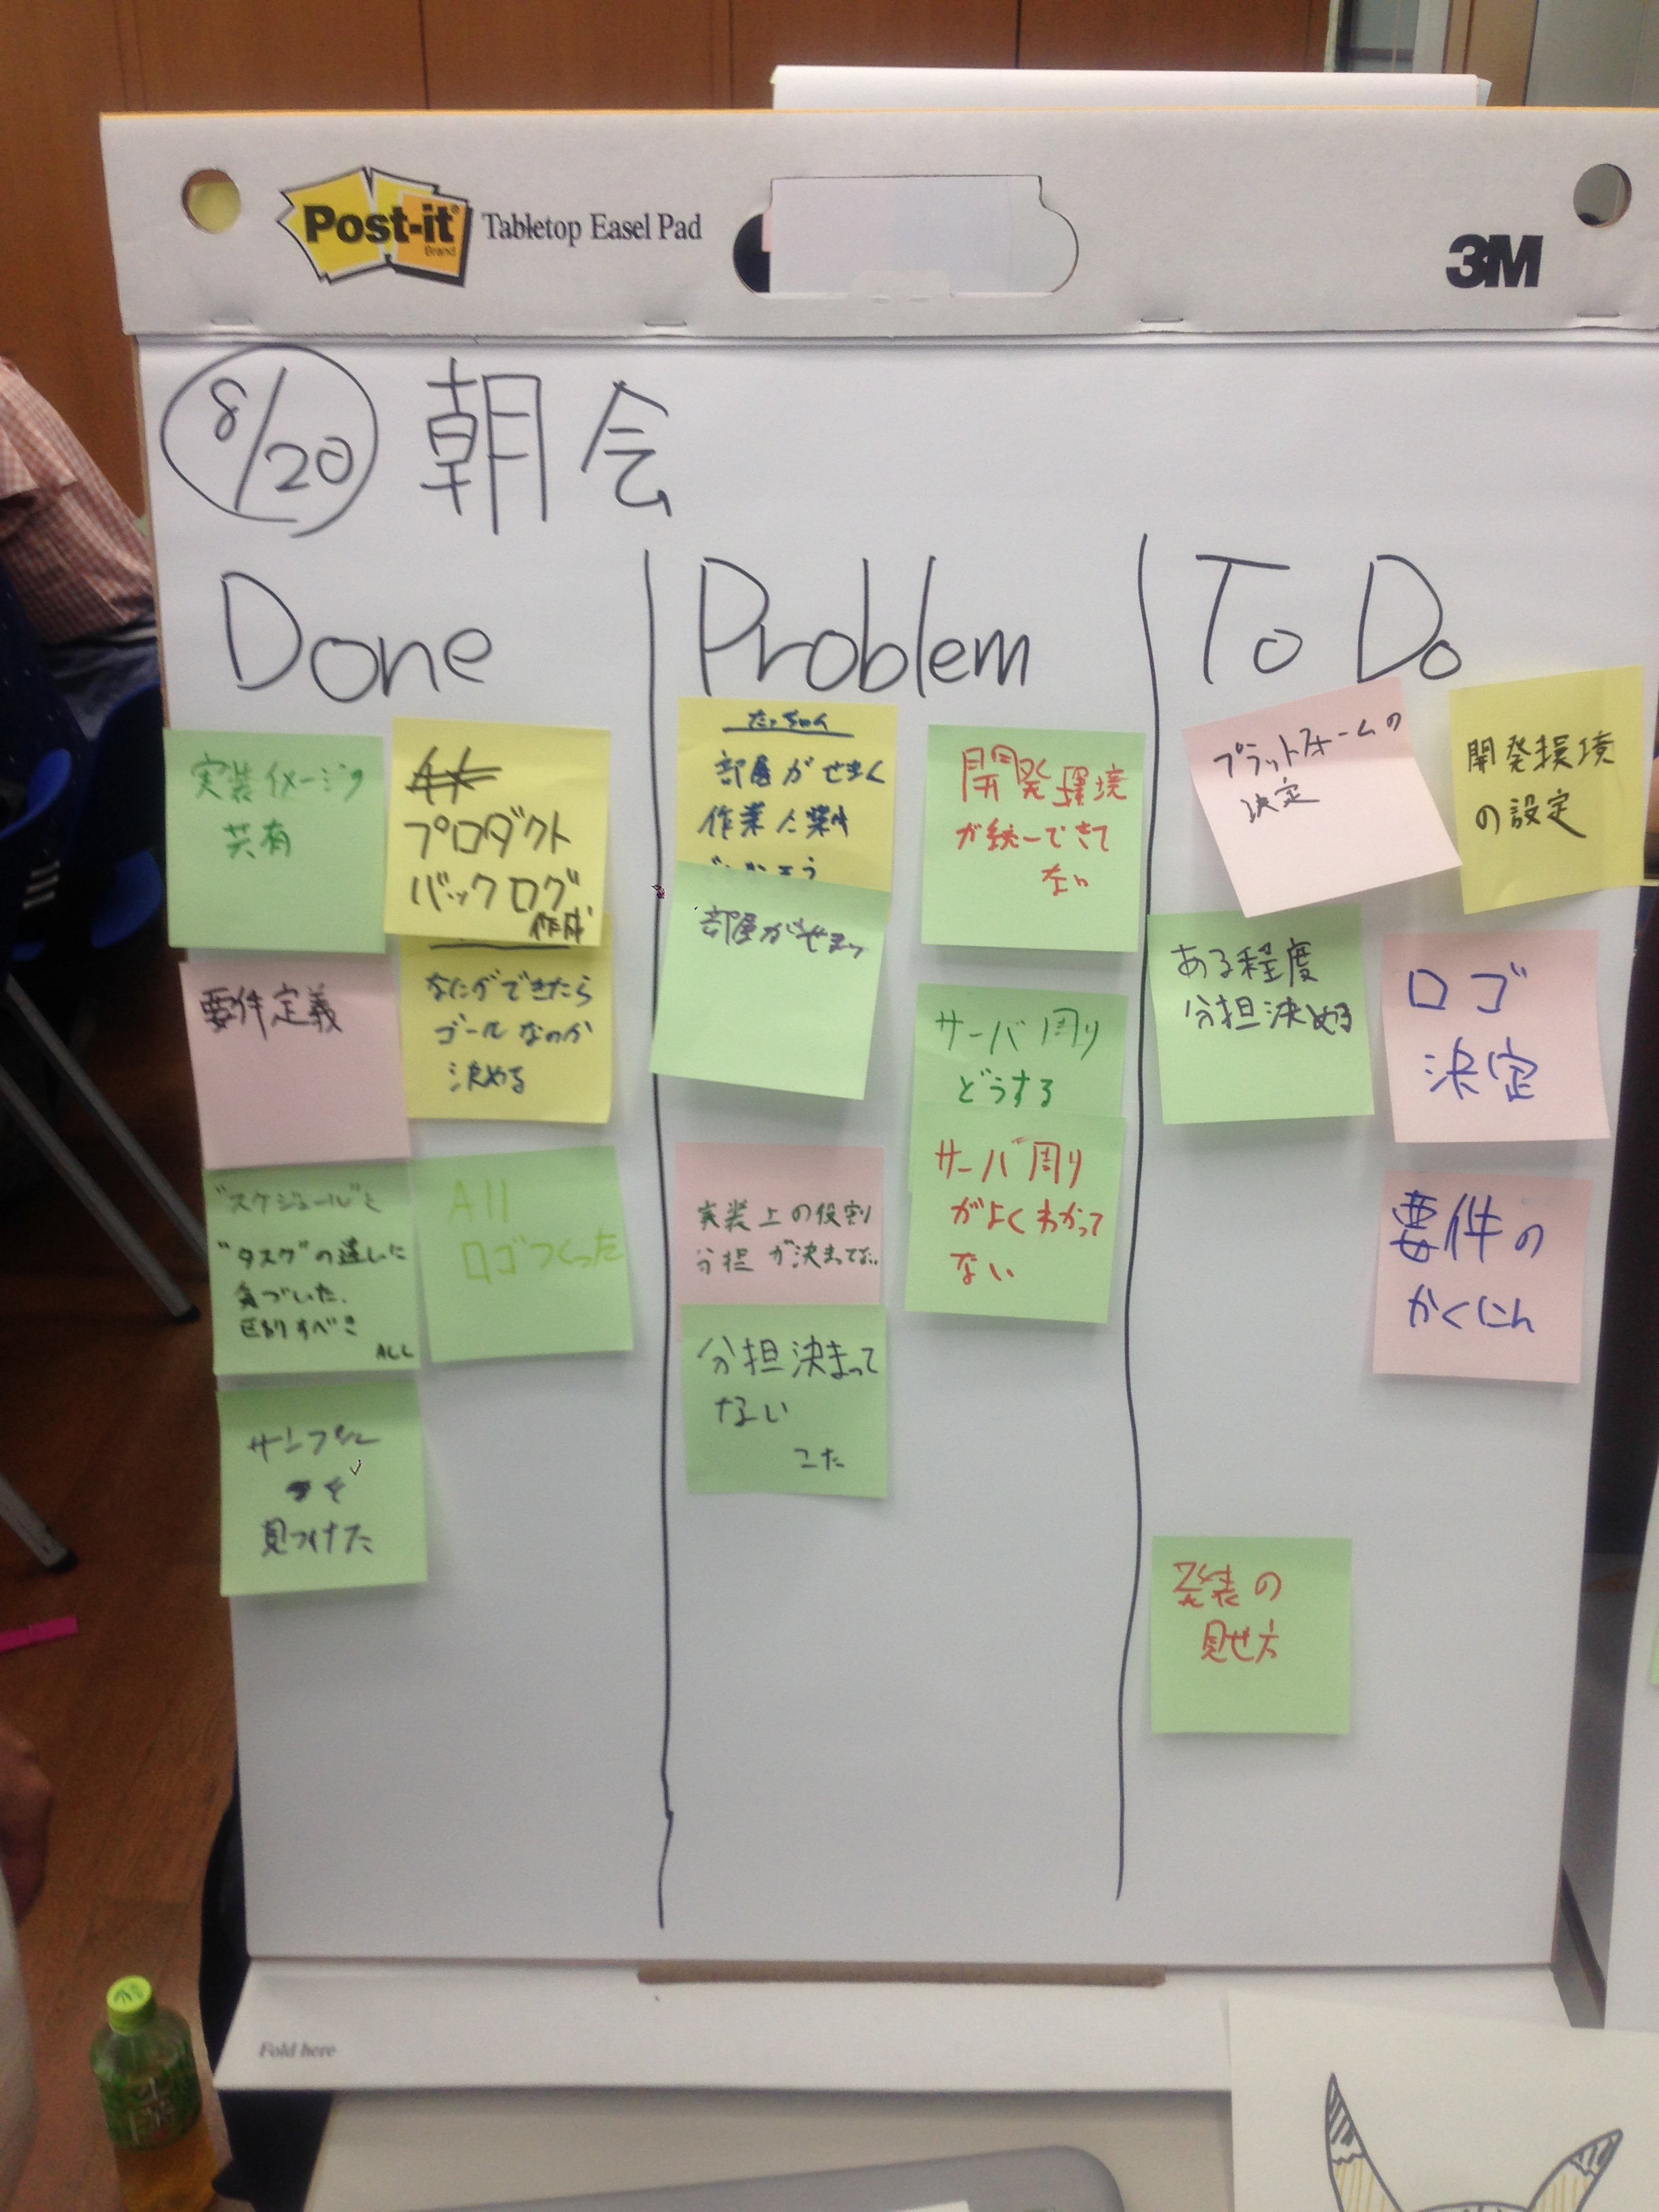 Post-it
Brand
Tabletop Easel Pad
3M
8/20 朝会
Done
実装イメージの
共有
プロダクト
バックログ
作成
要件定義
なにができたら
ゴールなのか
決める
"スケジュール"と
"タスク"の違いに
気づいた.
区別すべき
ALL
All
ロゴつくった
サンプル
を
見つけた
Problem
たっちゃん
部屋がせまく
作業に
部屋がせまい
開発環境
が統一できて
ない
サーバ周り
どうする
サーバ周り
がよくわかって
ない
実装上の役割
分担が決まってない
分担決まって
ない
こた
To Do
プラットフォームの
決定
開発環境
の設定
ある程度
分担決める
ロゴ
決定
要件の
かくにん
発表の
見せ方
Fold here